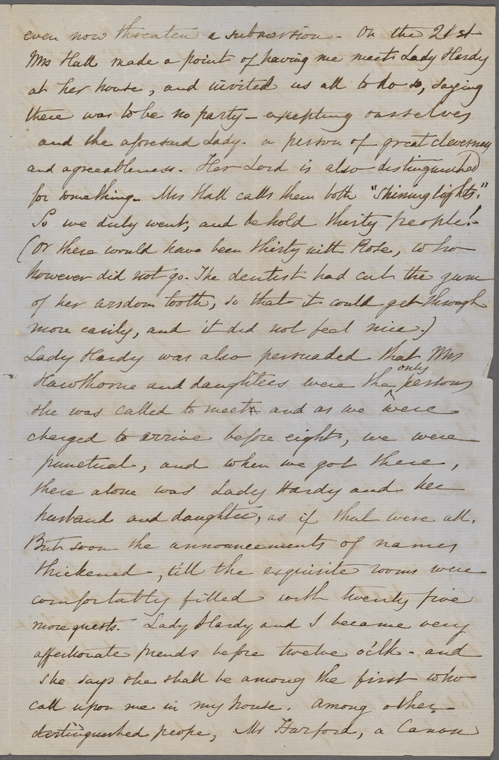 even now threaten a subversion. On the 21st
Mrs Hall made a point of having me meet Lady Hardy
at her house, and invited us all to do so, saying
there was to be no party - excepting ourselves
and the aforesaid Lady. a person of great cleverness
and agreeableness. Her Lord is also distinguished
for something. Mrs Hall calls them both "Shining lights."
So we duly went, and behold thirty people!
(Or there would have been thirty with Rose, who
however did not go. The dentist had cut the gum
of her wisdom tooth, so that it could get through
more easily, and it did not feel nice.)
Lady Hardy was also persuaded that Mrs
Hawthorne and daughters were the only persons
she was called to meet and as we were
charged to arrive before eight, we were
punctual, and when we got there,
there alone was Lady Hardy and her
husband and daughter, as if that were all.
But soon the announcements of names
thickened, till the exquisite rooms were
comfortably filled with twenty five
more guests. Lady Hardy and I became very
affectionate friends before twelve o'clk - and
she says she shall be among the first who
call upon me in my house. Among other
distinguished people, Mr Harford, a Canon